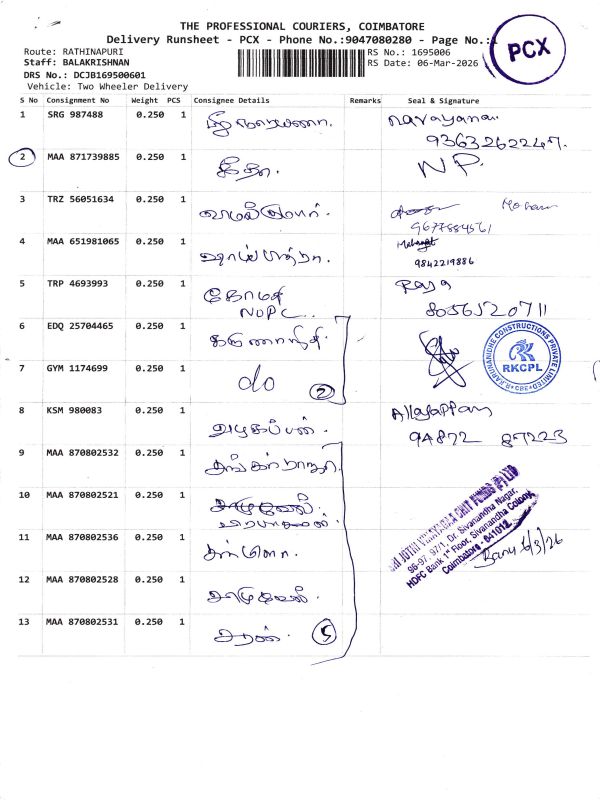 THE PROFESSIONAL COURIERS, COIMBATORE
Delivery Runsheet - PCX - Phone No.:9047080280 - Page No.:1
PCX
Route: RATHINAPURI
RS No.: 1695006
Staff: BALAKRISHNAN
RS Date: 06-Mar-2026
DRS No.: DCJB169500601
Vehicle: Two Wheeler Delivery
S No Consignment No Weight PCS Consignee Details Remarks Seal & Signature
1 SRG 987488 0.250 1 நாராயணா. Narayana.
9363262247.
2 MAA 871739885 0.250 1 NP.
3 TRZ 56051634 0.250 1 Mohan
9677884561
4 MAA 651981065 0.250 1
9842219886
5 TRP 4693993 0.250 1 கோமதி Raja
NOPC 8056520711
6 EDQ 25704465 0.250 1 கருணாநிதி
R.KARUNANIDHE CONSTRUCTIONS PRIVATE LIMITED
RKCPL
CBE
7 GYM 1174699 0.250 1 do 2
8 KSM 980083 0.250 1 அழகப்பன். Allagappan
94872 87223
9 MAA 870802532 0.250 1
10 MAA 870802521 0.250 1
SRI JOTHI VINAYAGA CHIT FUNDS (P) LTD
96-97, 97/1, Dr. Sivanandha Nagar,
HDFC Bank 1st Floor, Sivanandha Colony,
Coimbatore - 641012.
11 MAA 870802536 0.250 1
Banu 6/3/26
12 MAA 870802528 0.250 1
13 MAA 870802531 0.250 1 சரண். 5